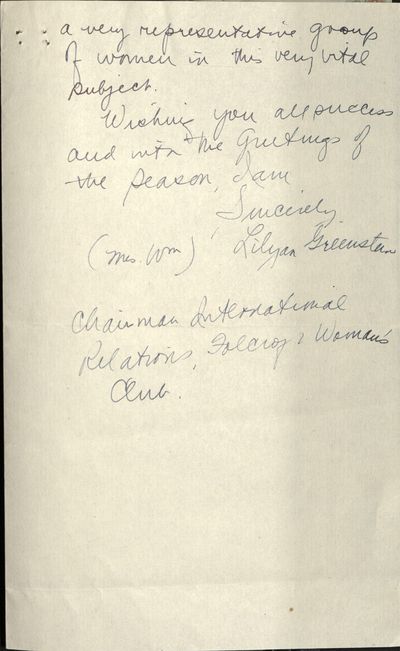 a very representative group
of women in this very vital
subject.
Wishing you all success
and with the Greetings of
the season, I am
Sincerely,
(Mrs. Wm) Lilyan Greenstein
Chairman International
Relations, Folcroft Woman's
Club.